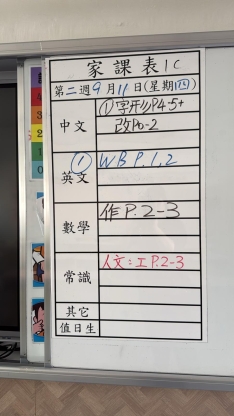 家課表1C
第二週9月11日(星期四)
中文 ①字形P4-5+
改P0-2
英文 ① WB P.1,2
數學 作P.2-3
常識 人文:工P.2-3
其它
值日生